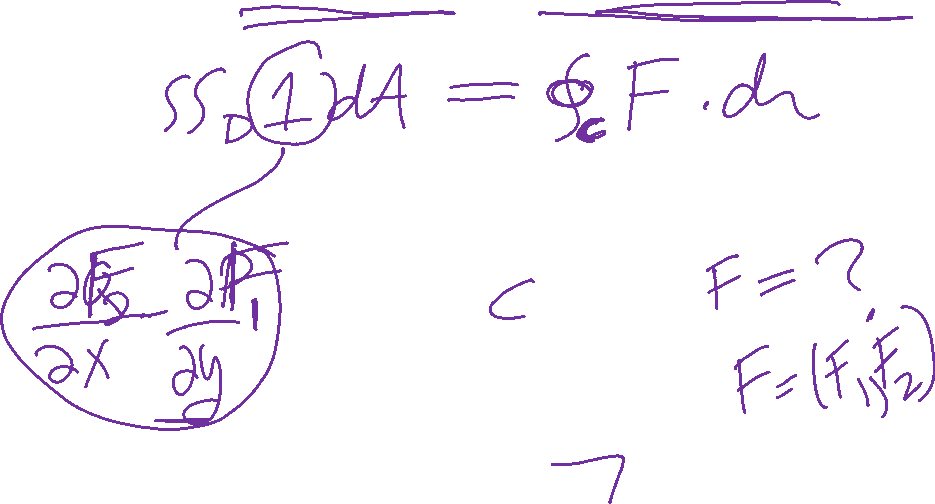 ∫∫_D 1 dA = ∮_C F · dr
∂F₂/∂x − ∂F₁/∂y
C
F = ?
F = (F₁, F₂)